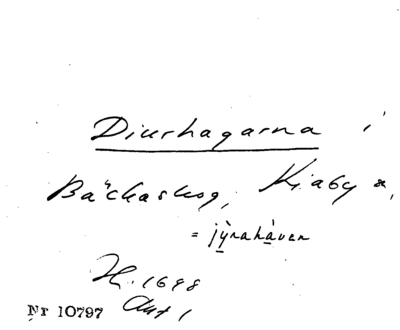 Diurhagarna i
Bäckaskog, Kiaby s,
= jỳnahàven
H. 1698
Akt 1
Nr 10797